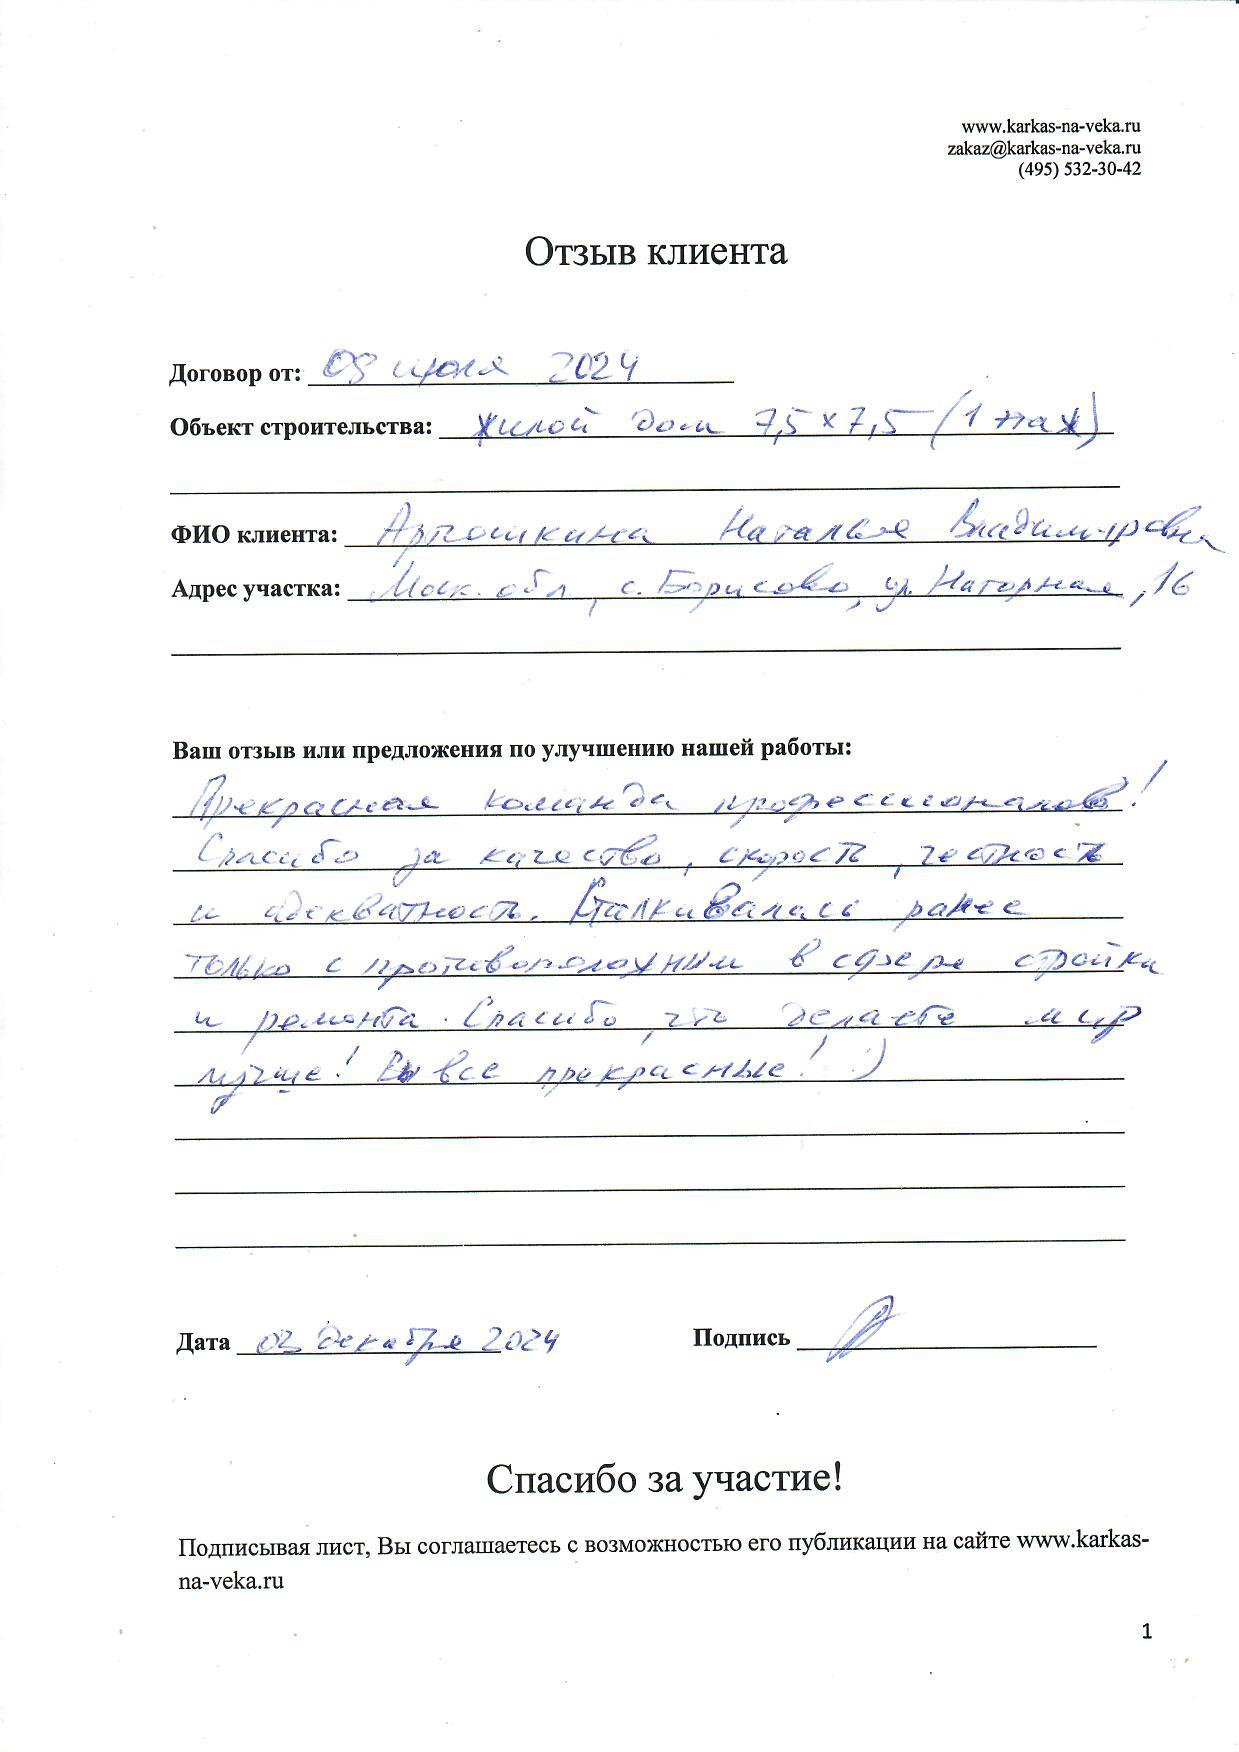 www.karkas-na-veka.ru
zakaz@karkas-na-veka.ru
(495) 532-30-42
Отзыв клиента
Договор от: 09 июля 2024
Объект строительства: жилой дом 7,5 х 7,5 (1 этаж)
ФИО клиента: Артюшкина Наталья Владимировна
Адрес участка: Моск. обл., с. Борисово, ул. Нагорная, 16
Ваш отзыв или предложения по улучшению нашей работы:
Прекрасная команда профессионалов!
Спасибо за качество, скорость, честность
и адекватность. Сталкивалась ранее
только с противоположным в сфере стройки
и ремонта. Спасибо, что делаете мир
лучше! Вы все прекрасные! :)
Дата 03 декабря 2024 Подпись
Спасибо за участие!
Подписывая лист, Вы соглашаетесь с возможностью его публикации на сайте www.karkas-
na-veka.ru
1